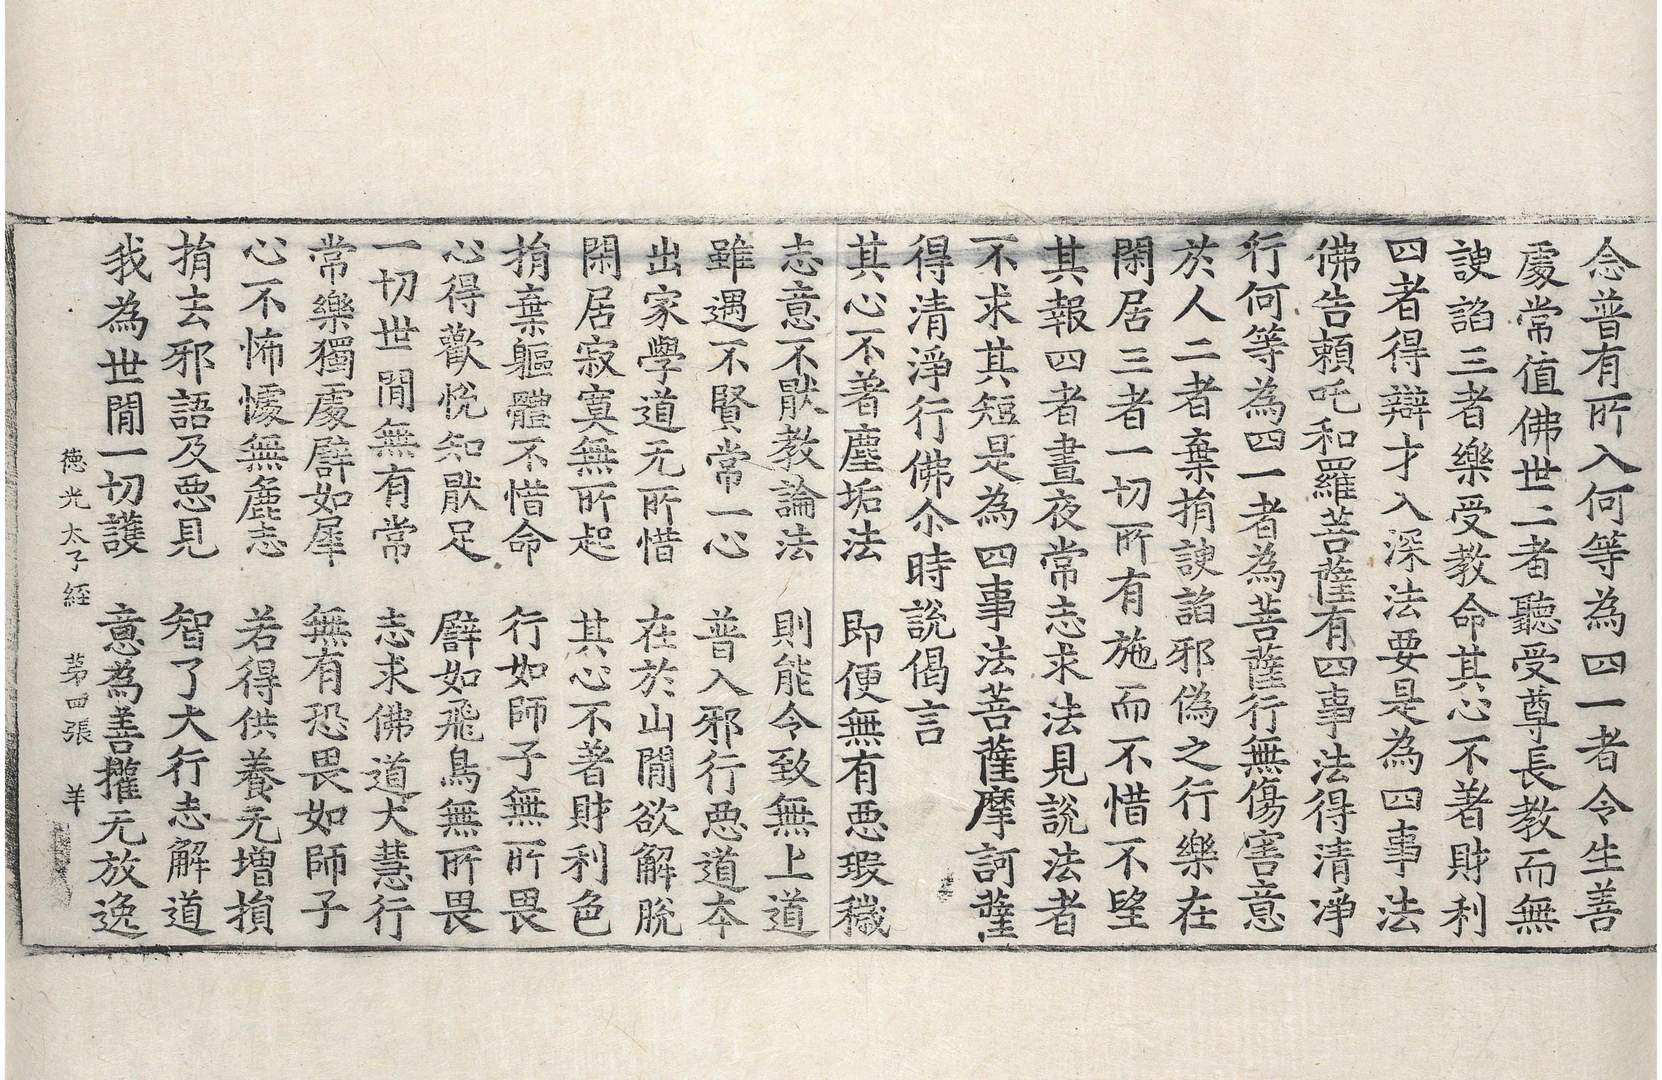 念普有所入何等為四一者令生善
處常值佛世二者聽受尊長教而無
諛諂三者樂受教命其心不著財利
四者得辯才入深法要是為四事法
佛告賴吒和羅菩薩有四事法得清淨
行何等為四一者為菩薩行無傷害意
於人二者棄捐諛諂邪偽之行樂在
閑居三者一切所有施而不惜不望
其報四者晝夜常志求法見說法者
不求其短是為四事法菩薩摩訶薩
得清淨行佛尒時說偈言
其心不著塵垢法　即便無有惡瑕穢
志意不猒教論法　則能令致無上道
雖遇不賢常一心　普入邪行惡道本
出家學道无所惜　在於山閒欲解脫
閑居寂寞無所起　其心不著財利色
捐棄軀體不惜命　行如師子無所畏
心得歡悅知猒足　譬如飛鳥無所畏
一切世閒無有常　志求佛道大慧行
常樂獨處譬如犀　無有恐畏如師子
心不怖懅無麁志　若得供養无增損
捐去邪語及惡見　智了大行志解道
我為世閒一切護　意為善攉无放逸
德光太子經　苐四張　羊